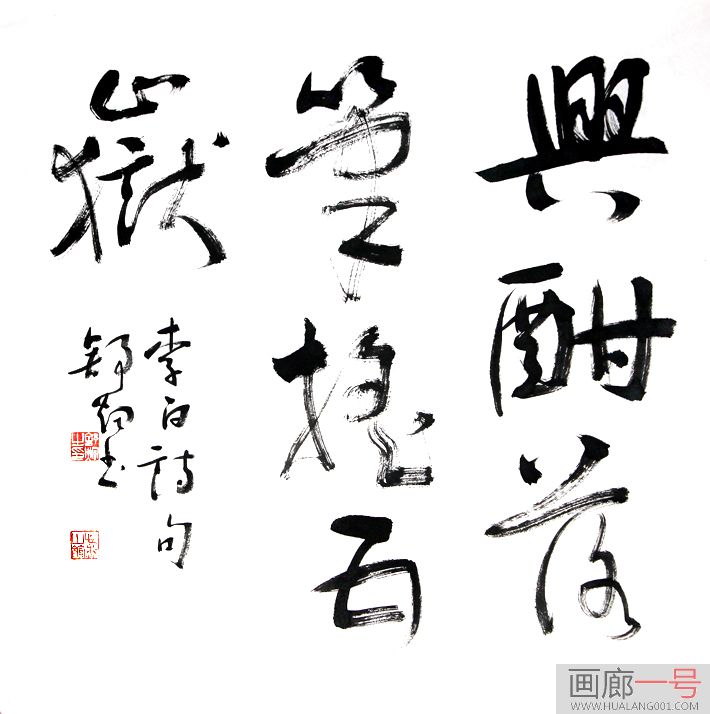 興酣落
筆搖五
嶽
李白詩句
舒
书
画廊一号
WWW.HUALANG001.COM